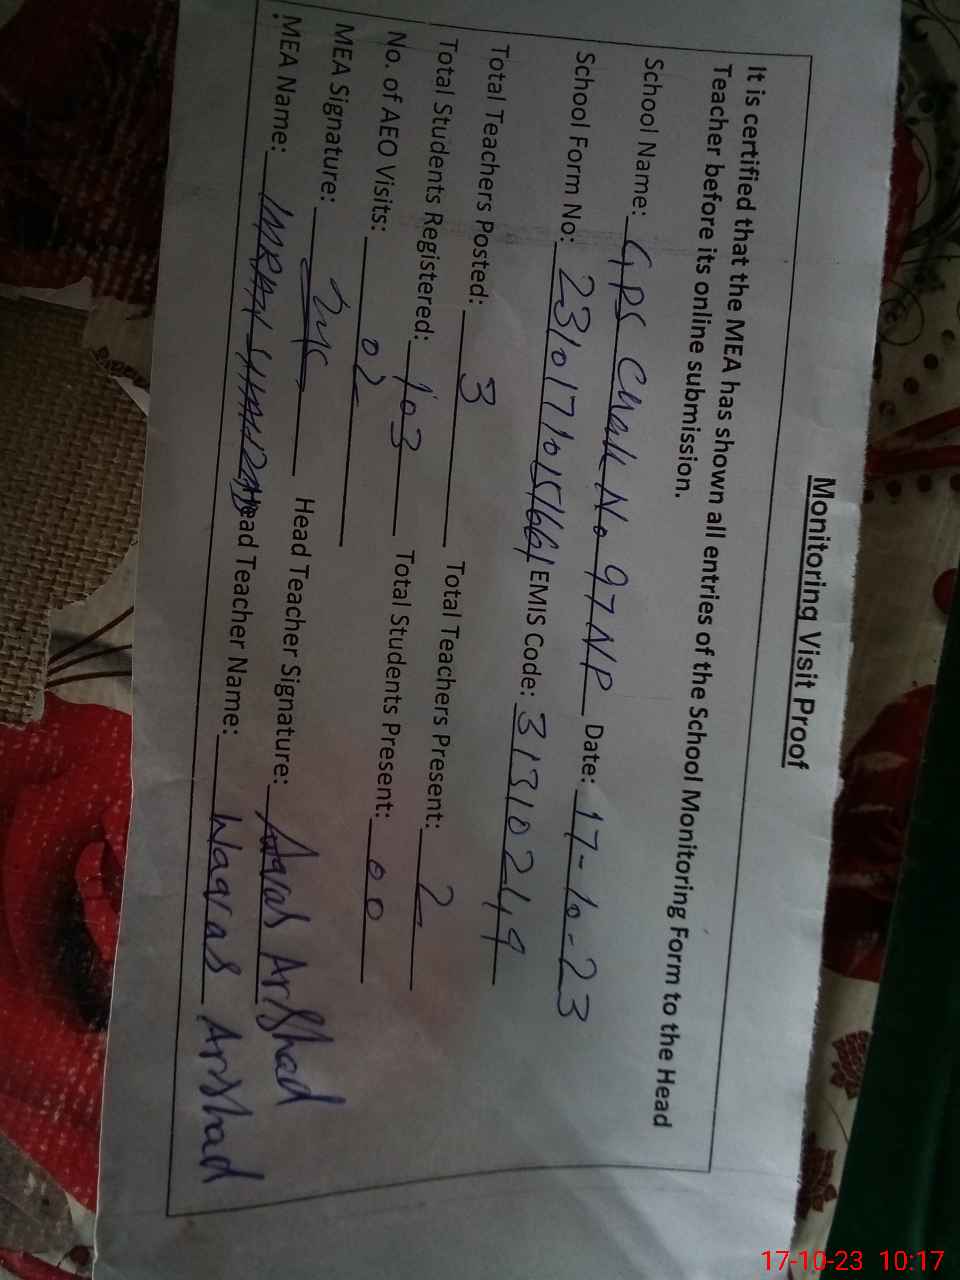 Monitoring Visit Proof
It is certified that the MEA has shown all entries of the School Monitoring Form to the Head
Teacher before its online submission.
School Name: GPS Chak No 97 NP Date: 17-10-23
School Form No: 23101710151661 EMIS Code: 31310249
Total Teachers Posted: 3 Total Teachers Present: 2
Total Students Registered: 103 Total Students Present: 00
No. of AEO Visits: 02
MEA Signature: Head Teacher Signature: Arshad
MEA Name: IMRAN SHAHZAD Head Teacher Name: Waqras Arshad
17-10-23 10:17